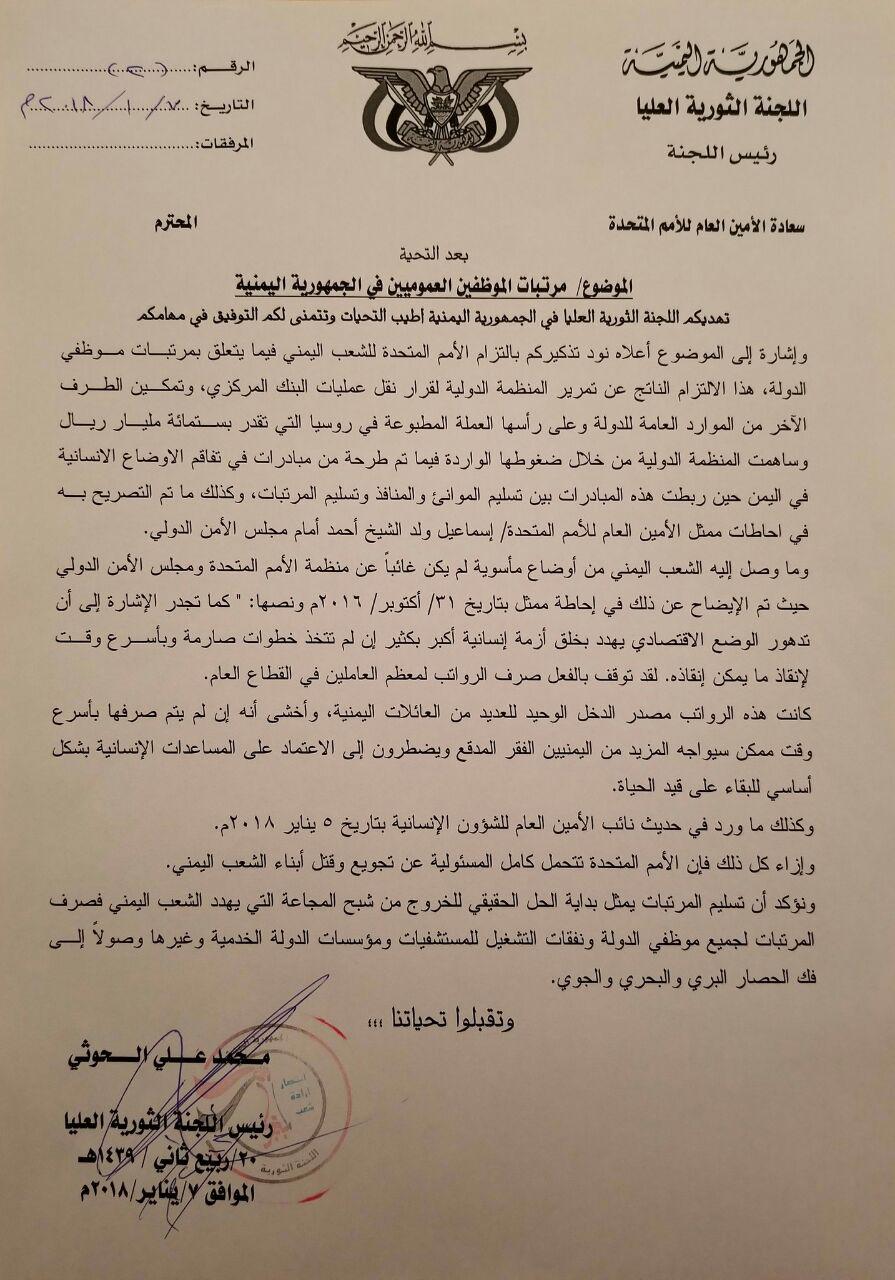 بسم الله الرحمن الرحيم
الجمهورية اليمنية
اللجنة الثورية العليا
رئيس اللجنة
الرقم:
التاريخ: ٧/١/٢٠١٨م
المرفقات:
سعادة الأمين العام للأمم المتحدة المحترم
بعد التحية
الموضوع/ مرتبات الموظفين العموميين في الجمهورية اليمنية
تهديكم اللجنة الثورية العليا في الجمهورية اليمنية أطيب التحيات وتتمنى لكم التوفيق في مهامكم
وإشارة إلى الموضوع أعلاه نود تذكيركم بالتزام الأمم المتحدة للشعب اليمني فيما يتعلق بمرتبات موظفي
الدولة، هذا الالتزام الناتج عن تمرير المنظمة الدولية لقرار نقل عمليات البنك المركزي، وتمكين الطرف
الآخر من الموارد العامة للدولة وعلى رأسها العملة المطبوعة في روسيا التي تقدر بستمائة مليار ريال
وساهمت المنظمة الدولية من خلال ضغوطها الواردة فيما تم طرحة من مبادرات في تفاقم الاوضاع الانسانية
في اليمن حين ربطت هذه المبادرات بين تسليم الموانئ والمنافذ وتسليم المرتبات، وكذلك ما تم التصريح به
في احاطات ممثل الأمين العام للأمم المتحدة/ إسماعيل ولد الشيخ أحمد أمام مجلس الأمن الدولي.
وما وصل إليه الشعب اليمني من أوضاع مأسوية لم يكن غائباً عن منظمة الأمم المتحدة ومجلس الأمن الدولي
حيث تم الإيضاح عن ذلك في إحاطة ممثل بتاريخ ٣١/ أكتوبر/ ٢٠١٦م ونصها: " كما تجدر الإشارة إلى أن
تدهور الوضع الاقتصادي يهدد بخلق أزمة إنسانية أكبر بكثير إن لم تتخذ خطوات صارمة وبأسرع وقت
لإنقاذ ما يمكن إنقاذه. لقد توقف بالفعل صرف الرواتب لمعظم العاملين في القطاع العام.
كانت هذه الرواتب مصدر الدخل الوحيد للعديد من العائلات اليمنية، وأخشى أنه إن لم يتم صرفها بأسرع
وقت ممكن سيواجه المزيد من اليمنيين الفقر المدقع ويضطرون إلى الاعتماد على المساعدات الإنسانية بشكل
أساسي للبقاء على قيد الحياة.
وكذلك ما ورد في حديث نائب الأمين العام للشؤون الإنسانية بتاريخ ٥ يناير ٢٠١٨م.
وإزاء كل ذلك فإن الأمم المتحدة تتحمل كامل المسئولية عن تجويع وقتل أبناء الشعب اليمني.
ونؤكد أن تسليم المرتبات يمثل بداية الحل الحقيقي للخروج من شبح المجاعة التي يهدد الشعب اليمني فصرف
المرتبات لجميع موظفي الدولة ونفقات التشغيل للمستشفيات ومؤسسات الدولة الخدمية وغيرها وصولاً إلى
فك الحصار البري والبحري والجوي.
وتقبلوا تحياتنا ،،،
محمد علي الحوثي
رئيس اللجنة الثورية العليا
٢٠/ربيع ثاني / ١٤٣٩هـ
الموافق ٧/يناير/٢٠١٨م
انتصار
إرادة
شعب
اللجنة الثورية